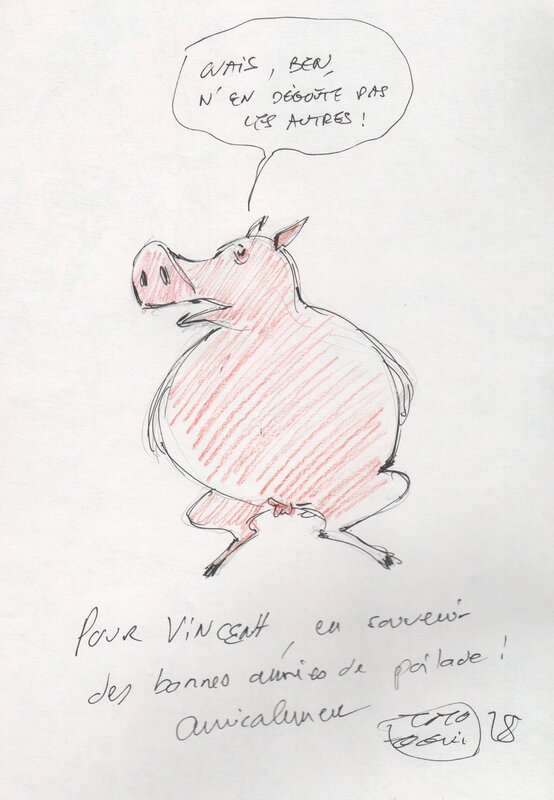 OUAIS, BEN,
N'EN DÉGOÛTE PAS
LES AUTRES !
POUR VINCENT, en souvenir
des bonnes années de poilade !
amicalement
18